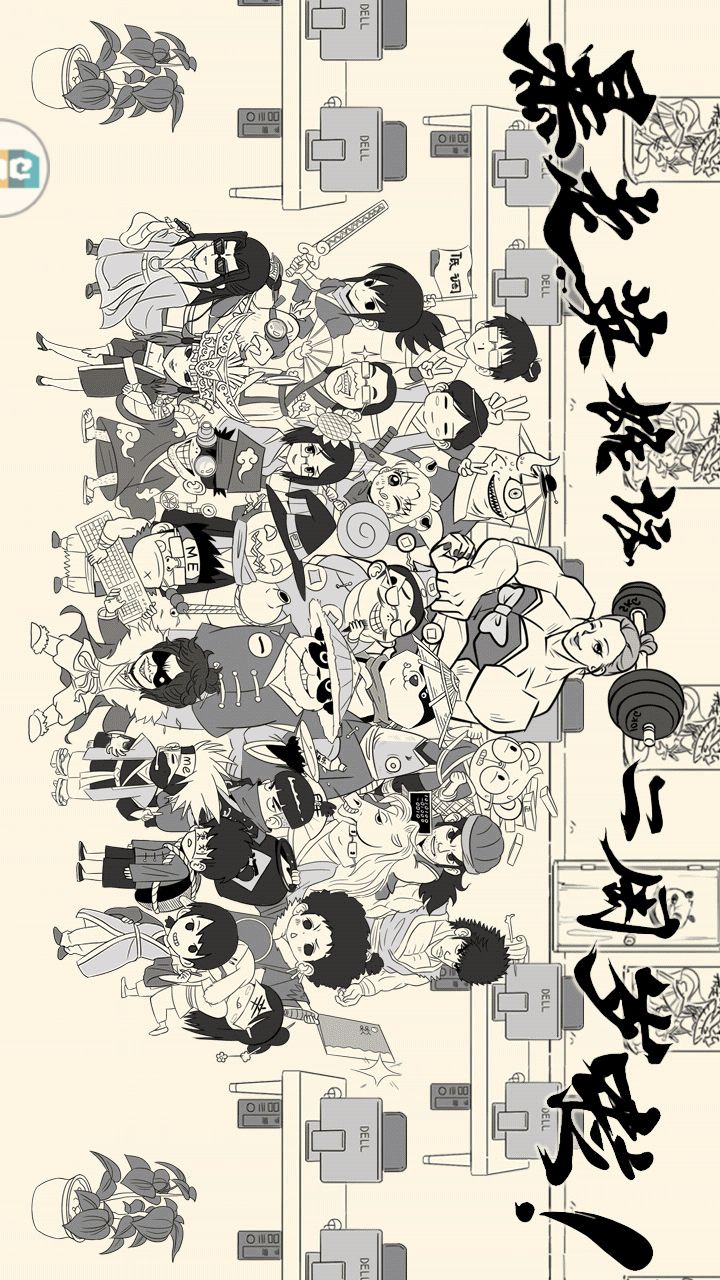 暴走英雄坛二周岁啦!
10KG
DELL
DELL
DELL
DELL
低调
DELL
DELL
DELL
DELL
ME
me